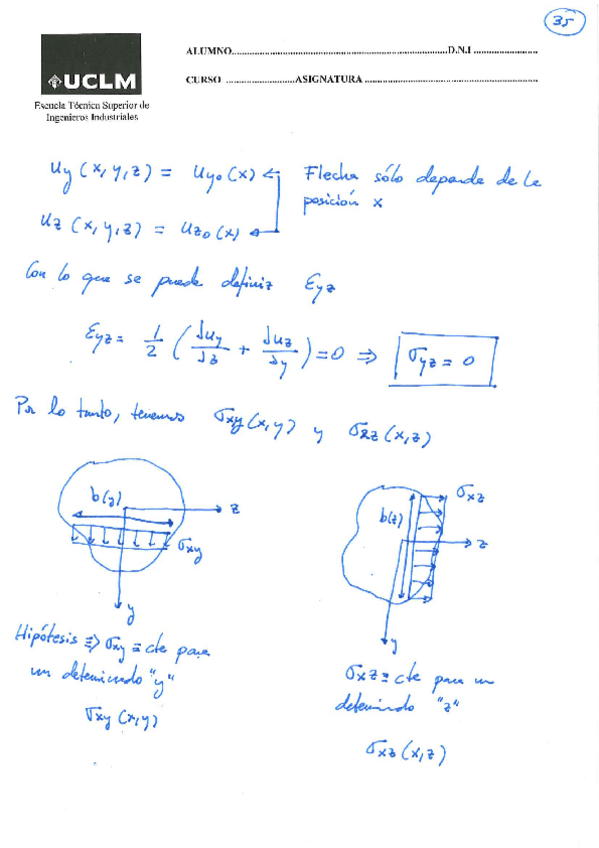 35
ALUMNO........................................................................D.N.I ......................
UCLM
CURSO .........................ASIGNATURA ..............................................................
Escuela Técnica Superior de
Ingenieros Industriales
uy (x,y,z) = uyo (x) Flecha sólo depende de la
posición x
uz (x,y,z) = uzo (x)
Con lo que se puede definir εyz
εyz = 1/2 (∂uy/∂z + ∂uz/∂y) = 0 ⇒ σyz = 0
Por lo tanto, tenemos σxy (x,y) y σxz (x,z)
b(y) z σxy y
b(z) σxz z y
Hipótesis ⇒ σxy = cte para
un determinado "y"
σxy (x,y)
σxz = cte para un
determinado "z"
σxz (x,z)